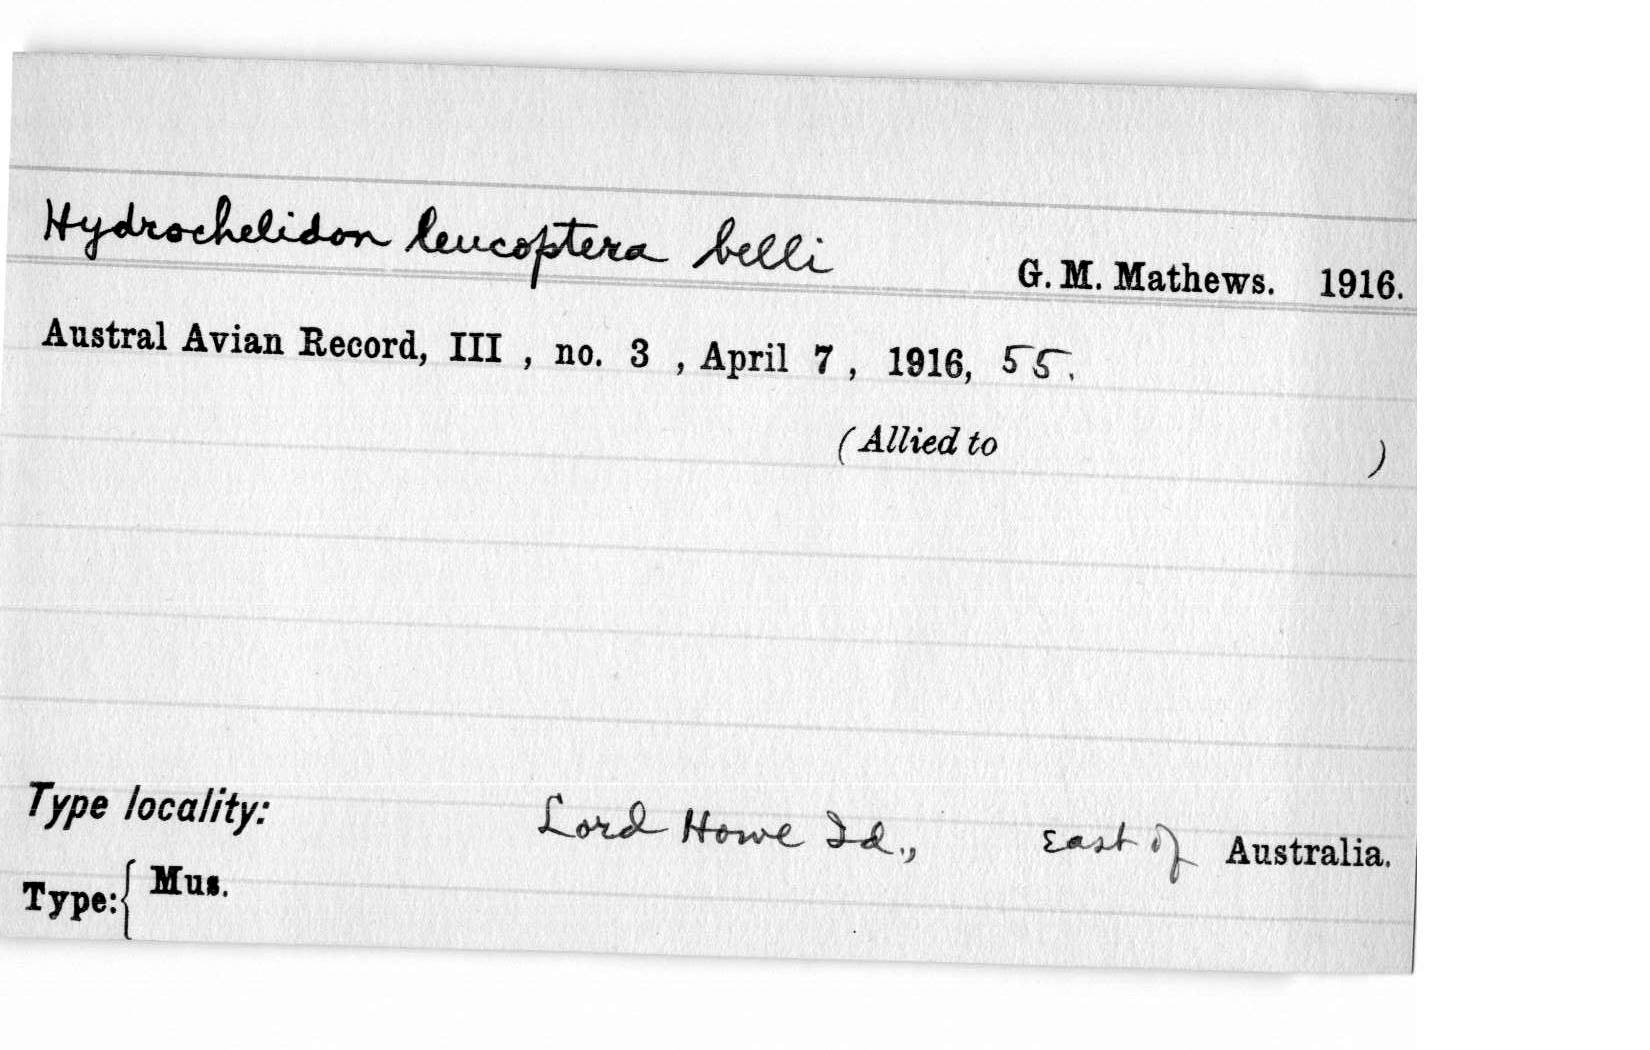 Hydrochelidon leucoptera belli G. M. Mathews. 1916.
Austral Avian Record, III , no. 3 , April 7 , 1916, 55.
(Allied to )
Type locality: Lord Howe Id., East of Australia.
Type:{ Mus.